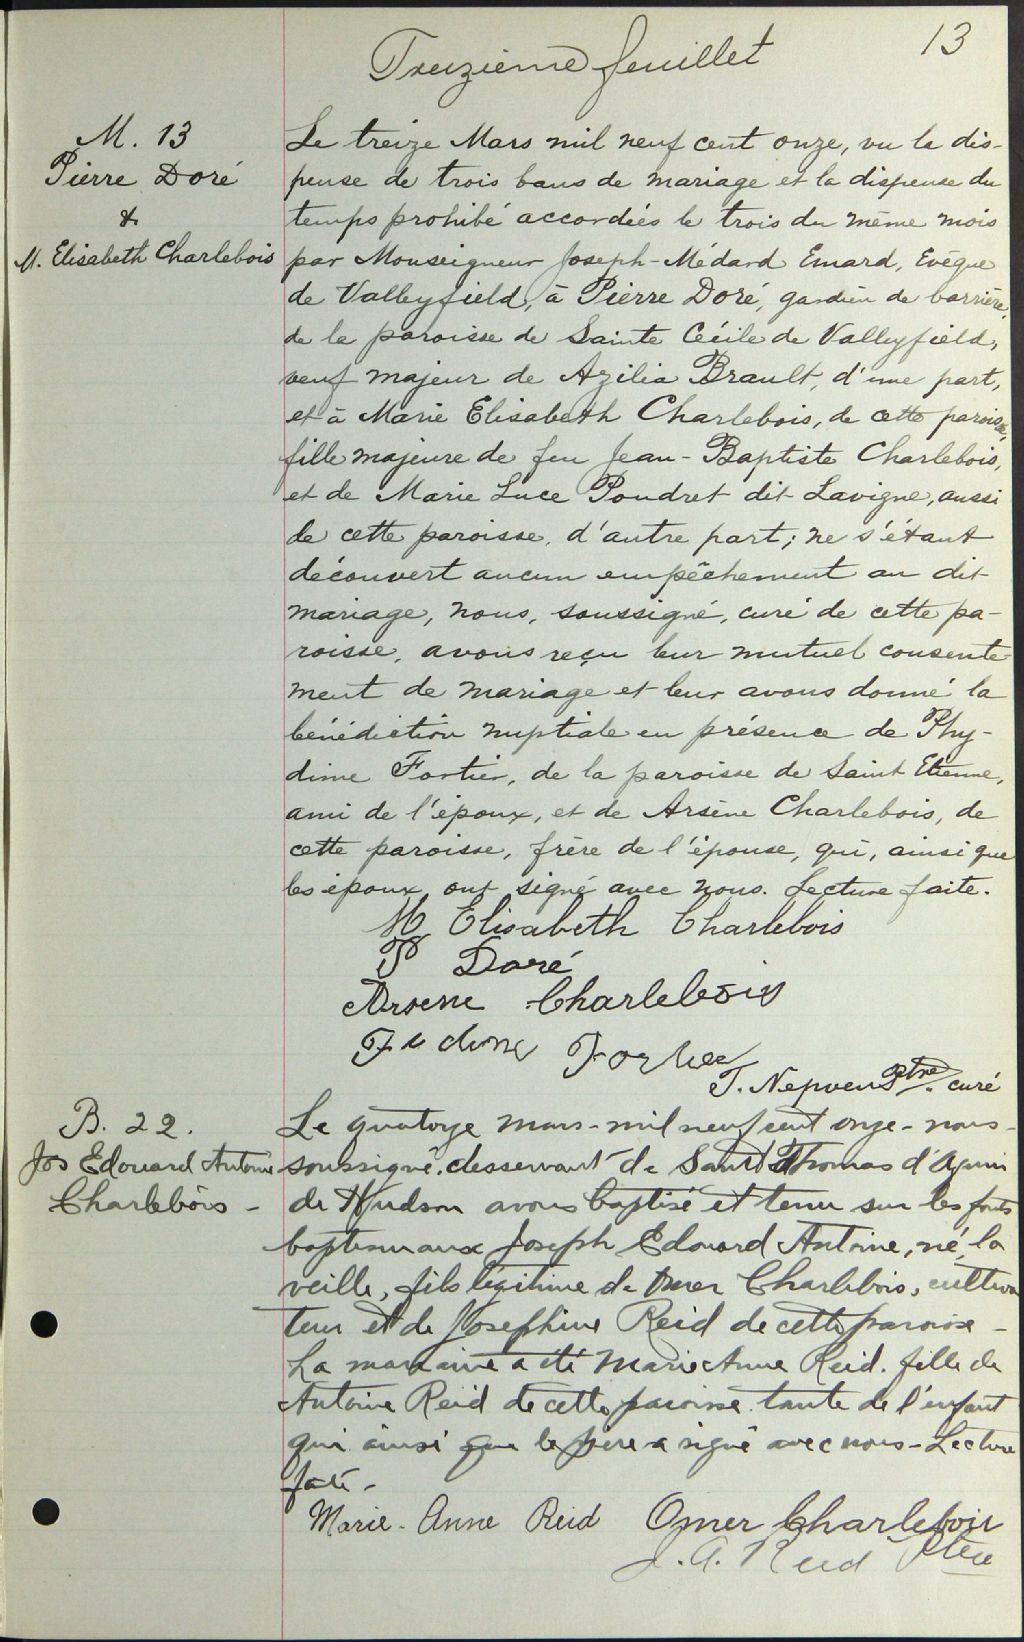 Treizième feuillet
13
M. 13
Pierre Doré
&
M. Elisabeth Charlebois
Le treize Mars mil neuf cent onze, vu la dis-
pense de trois bans de mariage et la dispense du
temps prohibé accordées le trois du même mois
par Monseigneur Joseph-Médard Emard, Evêque
de Valleyfield, à Pierre Doré, gardien de barrière,
de la paroisse de Sainte Cécile de Valleyfield,
veuf majeur de Azilia Brault, d'une part,
et à Marie Elisabeth Charlebois, de cette paroisse,
fille majeure de feu Jean-Baptiste Charlebois,
et de Marie Luce Poudret dit Lavigne, aussi
de cette paroisse, d'autre part; ne s'étant
découvert aucun empêchement au dit
mariage, nous, soussigné, curé de cette pa-
roisse, avons reçu leur mutuel consente-
ment de mariage et leur avons donné la
bénédiction nuptiale en présence de Phy-
dime Fortier, de la paroisse de Saint Etienne,
ami de l'époux, et de Arsène Charlebois, de
cette paroisse, frère de l'épouse, qui, ainsi que
les époux, ont signé avec nous. Lecture faite.
M Elisabeth Charlebois
P Doré
Arsene Charlebois
T. Nepveu Ptre. curé
B. 22.
Jos Edouard Antoine
Charlebois -
Le quatorze mars - mil neuf cent onze - nous -
soussigné, desservant de Saint Thomas d'Aquin
de Hudson avons baptisé et tenu sur les fonts
baptismaux Joseph Edouard Antoine, né la
veille, fils légitime de Omer Charlebois, cultiva
teur et de Josephine Reid de cette paroisse -
La marraine a été Marie Anne Reid. fille de
Antoine Reid de cette paroisse tante de l'enfant
qui ainsi que le père a signé avec nous - Lecture
faite -
Marie-Anne Reid Omer Charlebois
J. A. Reid Ptre